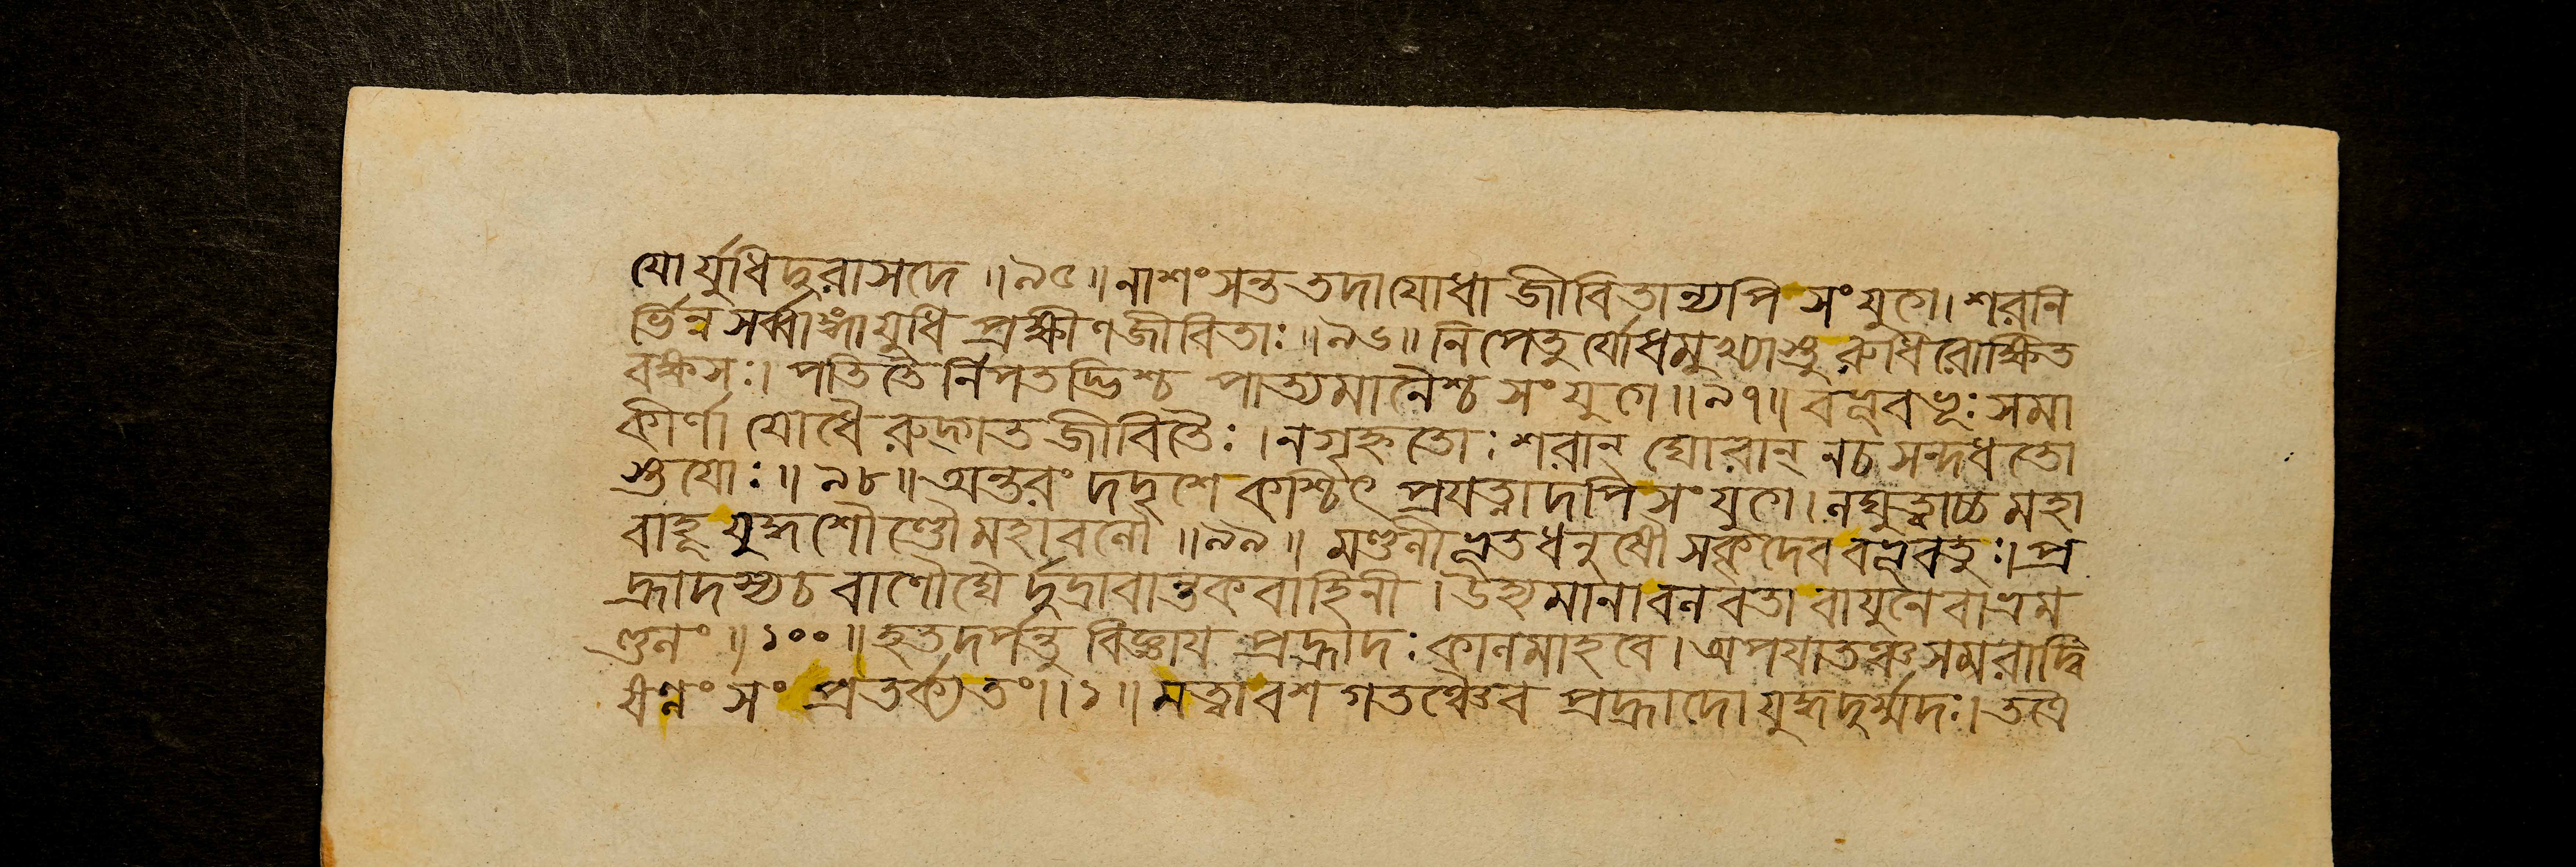 যো র্যুধিদুরাসদে ॥৯৫॥ নাশংসন্ত তদাযোধা জীবিতান্যপি সংযুগে। শরনি
র্ভিন্ন সর্ব্বাঙ্গা যুধি প্রক্ষীণ জীবিতাঃ ॥৯৬॥ নিপেতু র্যোধমুখ্যাস্তু রুধিরোক্ষিত
বক্ষসঃ। পতিতৈ র্নিপতদ্ভিশ্চ পাত্যমানৈশ্চ সংযুগে ॥৯৭॥ বভূব ভূঃ সমা
কীর্ণা যোধৈ রুদ্গত জীবিতৈঃ । নগৃহ্ণতোঃ শরান্ ঘোরান্ নচ সন্দধতো
স্তযোঃ ॥ ৯৮ ॥ অন্তরং দদৃশে কশ্চিৎ প্রযত্নাদপি সংযুগে। মহা
বাহূ যুদ্ধশৌণ্ডৌ মহাবলৌ ॥৯৯ ॥ মণ্ডলীভূতধনুষৌ সকৃদেব বভূবতুঃ। প্র
হ্লাদস্যচ বাণৌঘৈ র্দুদ্রাবান্তকবাহিনী । উহ্যমানা বলবতা বাযুনেবাভ্রম
ণ্ডলং ॥১০০॥ হৃতদর্পন্তু বিজ্ঞায প্রহ্লাদঃ কালমাহবে। অপযাতঞ্চ সমরাদ্বি
ষণ্ণং সং প্রতর্ক্য তং॥ ১॥ মত্বা বশ গতঞ্চৈব প্রহ্লাদো যুদ্ধদুর্ম্মদঃ। তত্রৈ